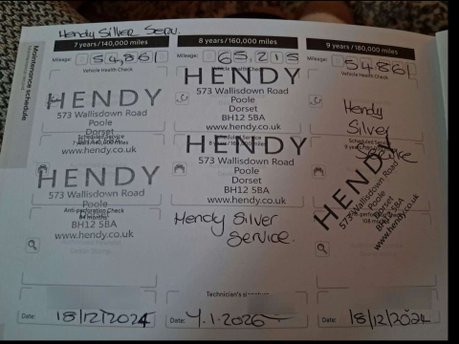 Hendy Silver Serv.
Maintenance schedule
7 years/140,000 miles
Mileage: 54,861
Vehicle Health Check
HENDY
573 Wallisdown Road
Poole
Dorset
BH12 5BA
www.hendy.co.uk
HENDY
573 Wallisdown Road
Poole
Dorset
BH12 5BA
www.hendy.co.uk
Anti-perforation Check
Date: 18/12/2024
8 years/160,000 miles
Mileage: 65,215
Vehicle Health Check
HENDY
573 Wallisdown Road
Poole
Dorset
BH12 5BA
www.hendy.co.uk
HENDY
573 Wallisdown Road
Poole
Dorset
BH12 5BA
www.hendy.co.uk
Hendy Silver
Service.
Technician's signature
Date: 7.1.2026
9 years/160,000 miles
Mileage: 54861
Vehicle Health Check
Hendy
Silver
Service
HENDY
573 Wallisdown Road
Poole
Dorset
BH12 5BA
www.hendy.co.uk
Date: 18/12/2024